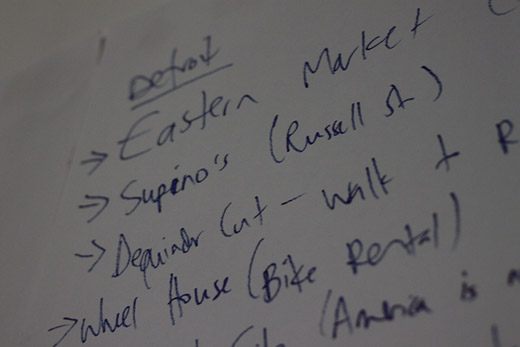 Detroit
→ Eastern Market (
→ Supino's (Russell St)
→ Dequindr Cut - walk + R
→ Wheel House (Bike Rental)
(America is